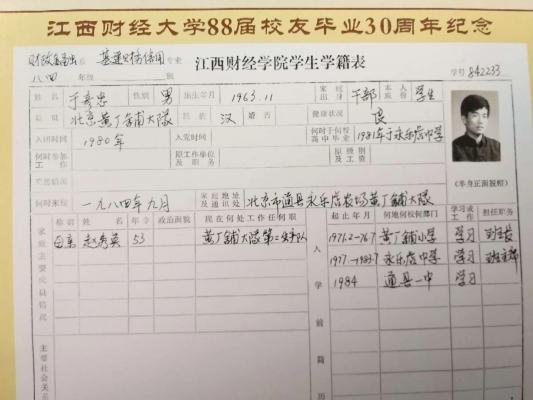 江西财经大学88届校友毕业30周年纪念
财政金融系 基建财务信用专业
江西财经学院学生学籍表
八四 年级 班 学号 842233
姓名 于秀忠 性别 男 出生年月 1963.11 家庭出身 干部 本人成份 学生
籍贯 北京黄厂铺大队 民族 汉 婚否 健康状况 良
入团时间 1980年 入党时间 何时于何校高中毕业 1981年于永乐店中学
何时参加工作 原工作单位及职务 原级别及工资
(半身正面脱帽)
何时来校 一九八四年九月 家庭地址及通讯处 北京市通县永乐店农场黄厂铺大队
家庭主要成员情况 称谓 姓名 年令 政治面貌 现在何处工作任何职
母亲 赵秀英 53 黄厂铺大队第二生产队
主要社会关系
入学前简历 起止年月 何地何校何部门 学习或工作 担任职务
1971.2-76.7 黄厂铺小学 学习 班主
1977-1983.7 永乐店中学 学习 班主席
1984 通县一中 学习